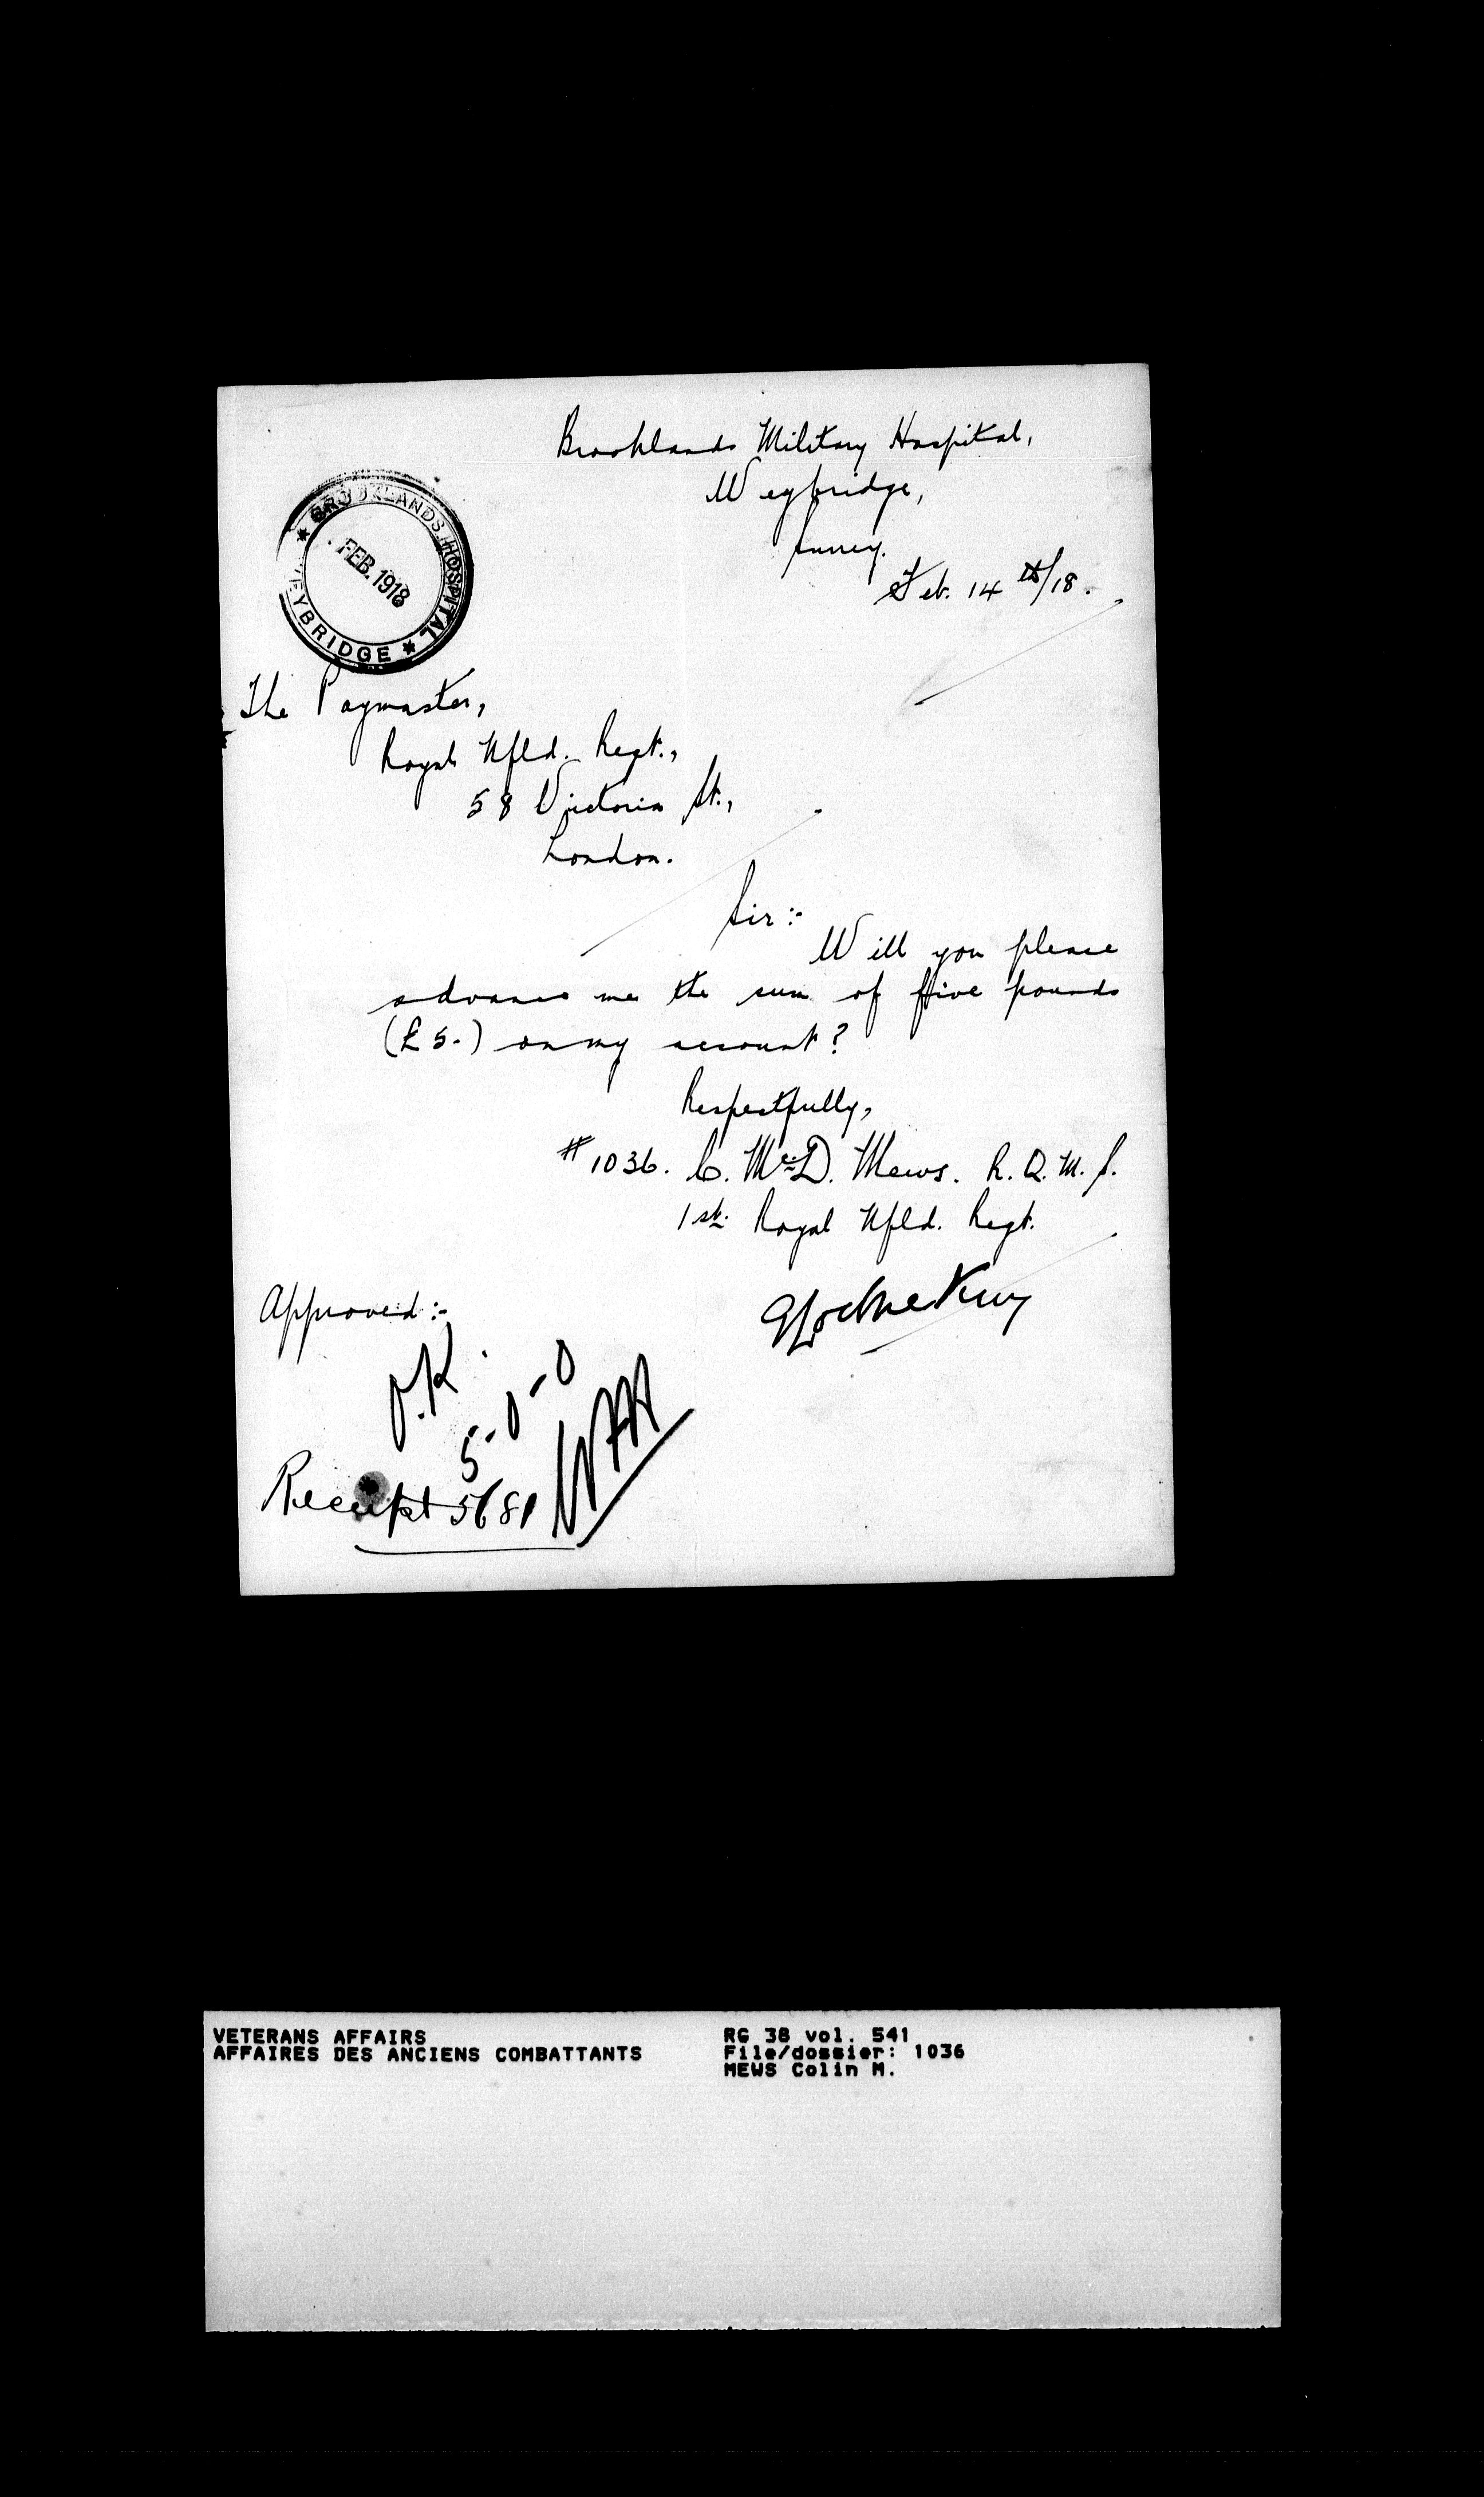 Brooklands Military Hospital,
Weybridge,
Surrey.
Feb. 14th/18.
* BROOKLANDS HOSPITAL * WEYBRIDGE
FEB. 1918
The Paymaster,
Royal Nfld. Regt.,
58 Victoria St.,
London.
Sir :-
Will you please
advance me the sum of five pounds
(£5-) on my account?
Respectfully,
#1036. C. McD. Mews. R.Q.M.S.
1st. Royal Nfld. Regt.
Approved :-
O.K.
5-0-0
Receipt 5681
VETERANS AFFAIRS
AFFAIRES DES ANCIENS COMBATTANTS
RG 38 vol. 541
File/dossier: 1036
MEWS Colin M.